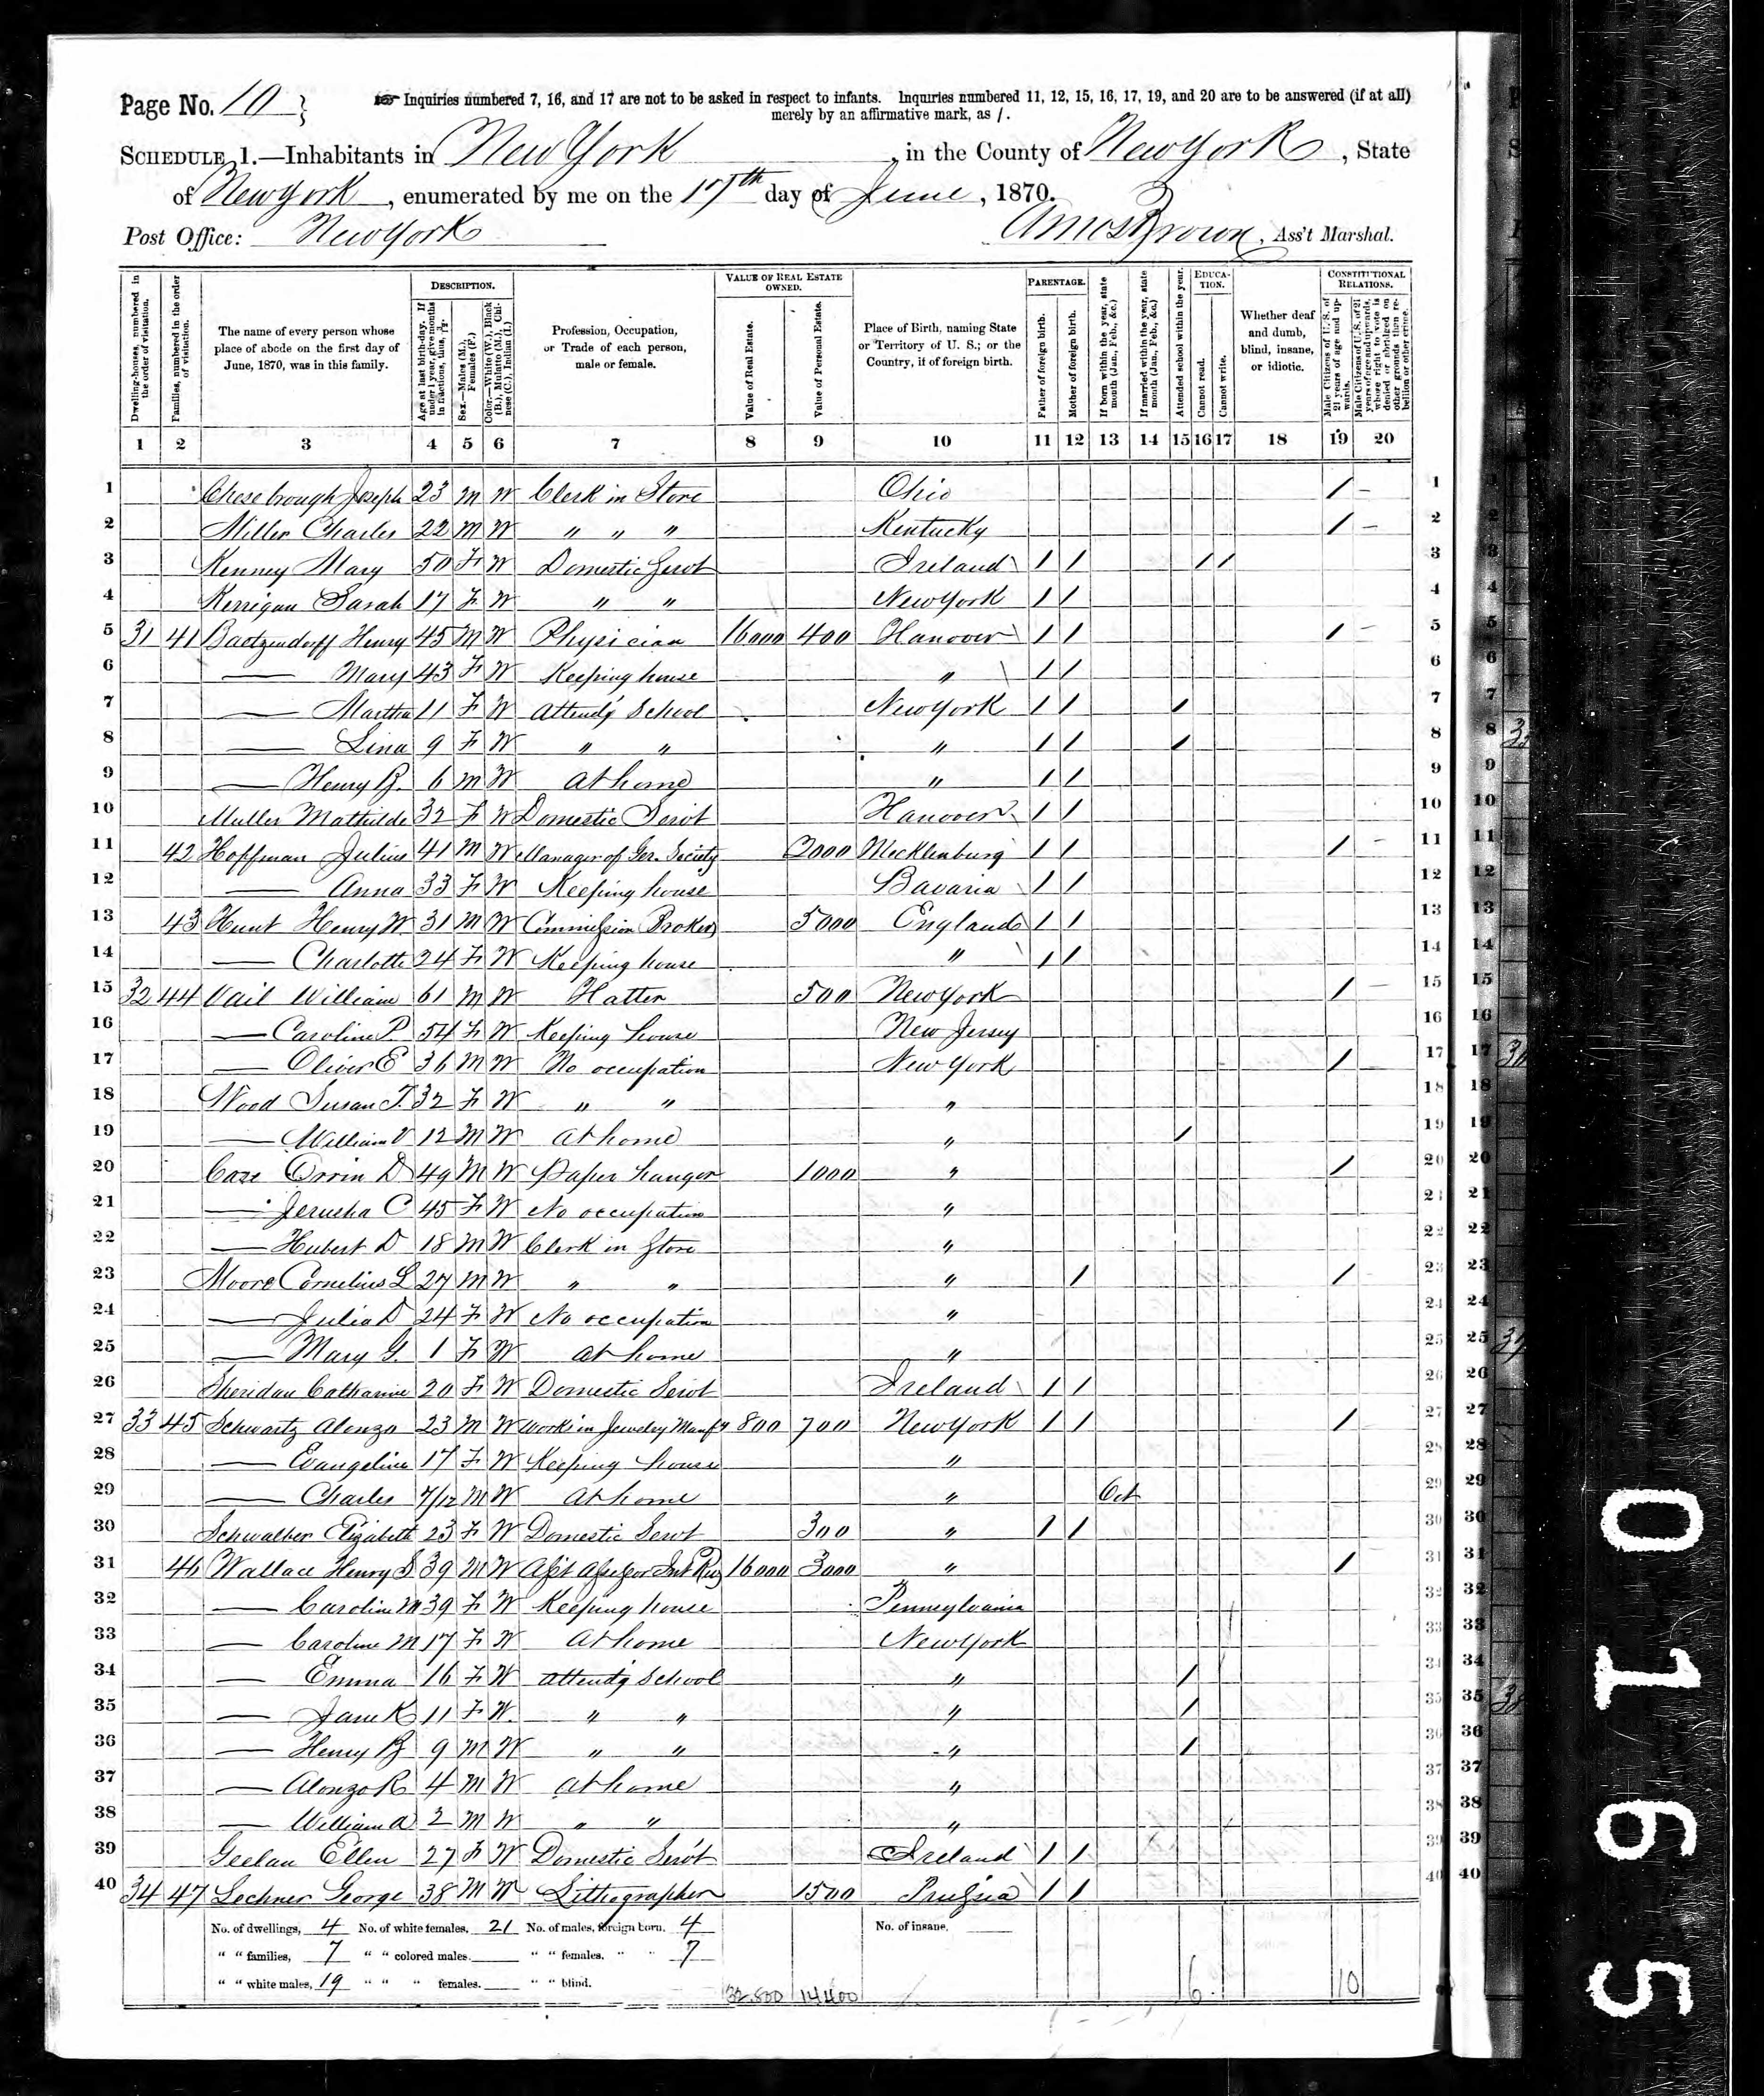 Page No. 10
Inquiries numbered 7, 16, and 17 are not to be asked in respect to infants. Inquiries numbered 11, 12, 15, 16, 17, 19, and 20 are to be answered (if at all)
merely by an affirmative mark, as /.
SCHEDULE 1.—Inhabitants in New York, in the County of New York, State
of New York, enumerated by me on the 17th day of June, 1870.
Post Office: New York
Amos Brown, Ass't Marshal.
Dwelling-houses, numbered in the order of visitation.
Families, numbered in the order of visitation.
The name of every person whose place of abode on the first day of June, 1870, was in this family.
DESCRIPTION.
Age at last birth-day. If under 1 year, give months in fractions, thus, 3/12.
Sex.—Males (M.), Females (F.)
Color.—White (W.), Black (B.), Mulatto (M.), Chinese (C.), Indian (I.)
Profession, Occupation, or Trade of each person, male or female.
VALUE OF REAL ESTATE OWNED.
Value of Real Estate.
Value of Personal Estate.
Place of Birth, naming State or Territory of U. S.; or the Country, if of foreign birth.
PARENTAGE.
Father of foreign birth.
Mother of foreign birth.
If born within the year, state month (Jan., Feb., &c.)
If married within the year, state month (Jan., Feb., &c.)
Attended school within the year.
EDUCATION.
Cannot read.
Cannot write.
Whether deaf and dumb, blind, insane, or idiotic.
CONSTITUTIONAL RELATIONS.
Male Citizens of U. S. of 21 years of age and upwards.
Male Citizens of U. S. of 21 years of age and upwards, whose right to vote is denied or abridged on other grounds than rebellion or other crime.
1 2 3 4 5 6 7 8 9 10 11 12 13 14 15 16 17 18 19 20
1 Chesebrough Joseph 23 M W Clerk in Store Ohio / – 1
2 Miller Charles 22 M W " " " Kentucky / – 2
3 Kenney Mary 50 F W Domestic Servt Ireland / / / / 3
4 Kerrigan Sarah 17 F W " " New York / / 4
5 31 41 Baetzendorff Henry 45 M W Physician 16000 400 Hanover / / / – 5
6 — Mary 43 F W Keeping house " / / 6
7 — Martha 11 F W Attend'g School New York / / / 7
8 — Lina 9 F W " " " / / / 8
9 — Henry B. 6 M W At home " / / 9
10 Muller Mathilde 32 F W Domestic Servt Hanover / / 10
11 42 Hoffman Julius 41 M W Manager of Ger. Society 2000 Mecklenburg / / / – 11
12 — Anna 33 F W Keeping house Bavaria / / 12
13 43 Hunt Henry W 31 M W Commission Broker 5000 England / / 13
14 — Charlotte 24 F W Keeping house " / / 14
15 32 44 Vail William 61 M W Hatter 500 New York / – 15
16 — Caroline P. 54 F W Keeping house New Jersey 16
17 — Oliver E 36 M W No occupation New York / 17
18 Wood Susan T. 32 F W " " " 18
19 — William V 12 M W At home " / 19
20 Case Orrin D 49 M W Paper hanger 1000 " / 20
21 — Jerusha C 45 F W No occupation " 21
22 — Hubert D 18 M W Clerk in Store " 22
23 Moore Cornelius L 27 M W " " " / / 23
24 — Julia D 24 F W No occupation " 24
25 — Mary G. 1 F W At home " 25
26 Sheridan Catharine 20 F W Domestic Servt Ireland / / 26
27 33 45 Schwartz Alonzo 23 M W Works in Jewelry Manfy 800 700 New York / / / 27
28 — Evangeline 17 F W Keeping house " 28
29 — Charles 7/12 M W At home " Oct 29
30 Schwalber Elizabeth 23 F W Domestic Servt 300 " / / 30
31 46 Wallace Henry S 39 M W Asst Assessor Int Rev 16000 3000 " / 31
32 — Caroline M 39 F W Keeping house Pennsylvania 32
33 — Caroline M 17 F W At home New York 33
34 — Emma 16 F W Attend'g School " / 34
35 — Jane K 11 F W. " " " / 35
36 — Henry B 9 M W " " " / 36
37 — Alonzo R 4 M W At home " 37
38 — William A 2 M W " " " 38
39 Geelan Ellen 27 F W Domestic Servt Ireland / / 39
40 34 47 Lechner George 38 M W Lithographer 1500 Prussia / / 40
No. of dwellings, 4 No. of white females, 21 No. of males, foreign born, 4 No. of insane,
" " families, 7 " " colored males, " " females, " " 7
" " white males, 19 " " " females, " " blind.
32,800 14,400 6 10
0165